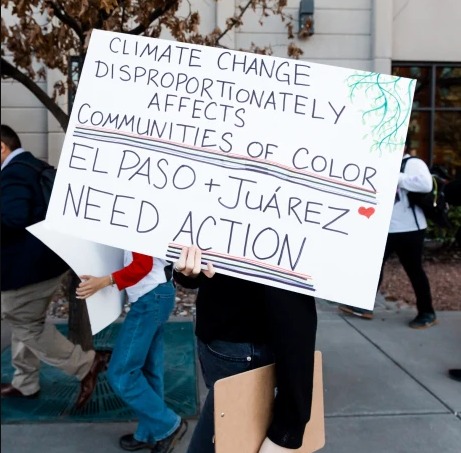 CLIMATE CHANGE
DISPROPORTIONATELY
AFFECTS
COMMUNITIES OF COLOR
EL PASO + JUÁREZ
NEED ACTION